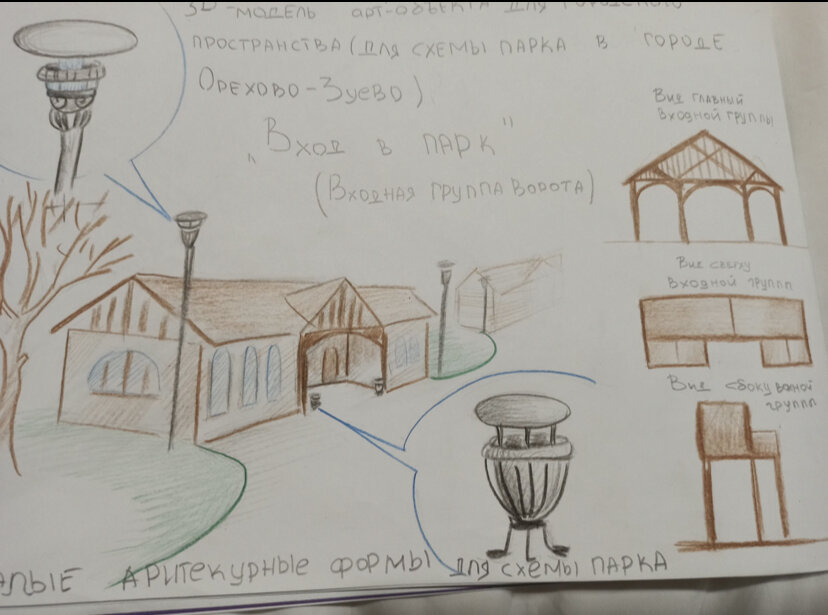 3D-модель арт-объекта для городского
пространства (для схемы парка в городе
Орехово-Зуево)
"Вход в парк"
(Входная группа ворота)
Вид главный
входной группы
Вид сверху
входной групп
Вид сбоку
группы
Аритекурные формы для схемы парка